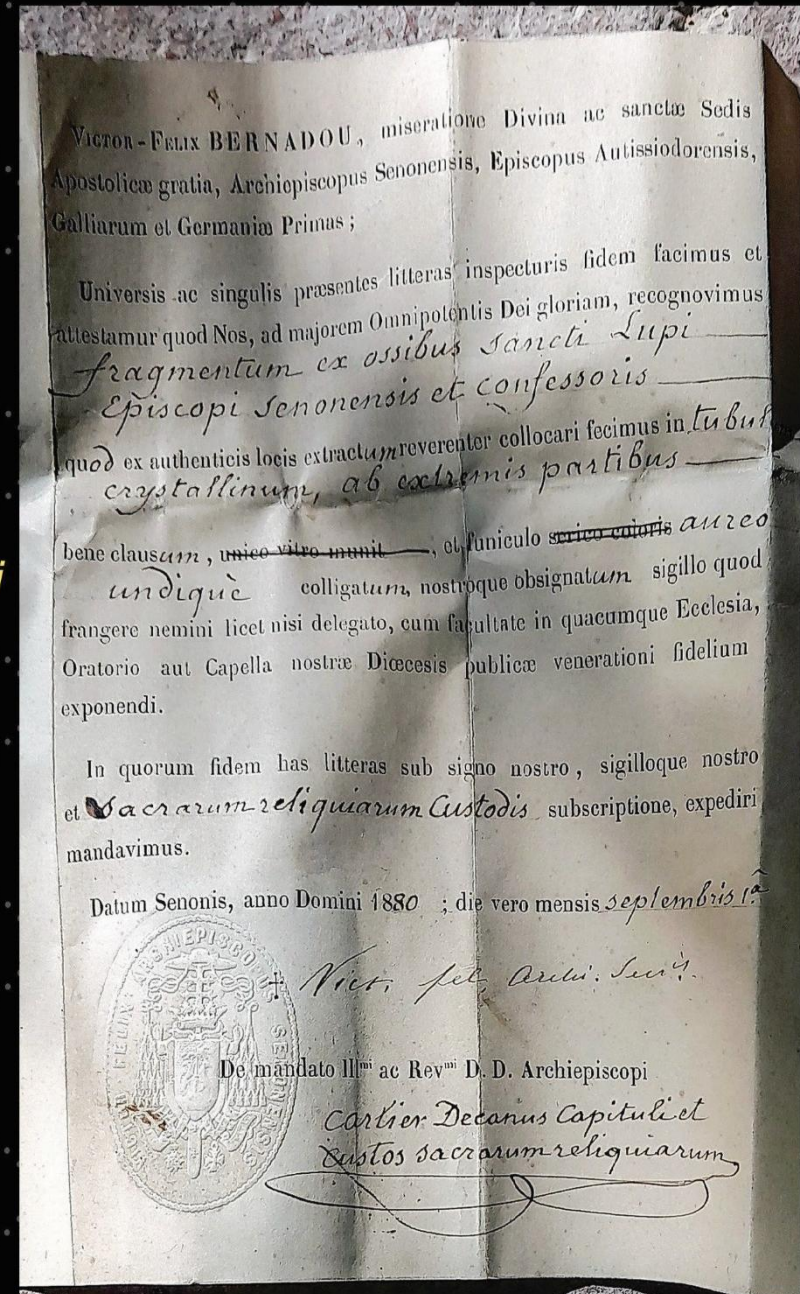 VICTOR-FELIX BERNADOU, miseratione Divina ac sanctæ Sedis
Apostolicæ gratia, Archiepiscopus Senonensis, Episcopus Autissiodorensis,
Galliarum et Germaniæ Primas ;
Universis ac singulis præsentes litteras inspecturis fidem facimus et
attestamur quod Nos, ad majorem Omnipotentis Dei gloriam, recognovimus
fragmentum ex ossibus Sancti Lupi
Episcopi Senonensis et confessoris
quod ex authenticis locis extractum reverenter collocari fecimus in tubul
crystallinum, ab extremis partibus
bene clausum, unico vitro munit , et funiculo serico coloris aureo
undiquè colligatum, nostroque obsignatum sigillo quod
frangere nemini licet nisi delegato, cum facultate in quacumque Ecclesia,
Oratorio aut Capella nostræ Diœcesis publicæ venerationi fidelium
exponendi.
In quorum fidem has litteras sub signo nostro, sigilloque nostro
et Sacrarum reliquiarum Custodis subscriptione, expediri
mandavimus.
Datum Senonis, anno Domini 1880 ; die vero mensis septembris 1.ª
† Vict. fel. Archi. Sen.
De mandato Ill.mi ac Rev.mi D. D. Archiepiscopi
Carlier Decanus Capituli et
Custos sacrarum reliquiarum
FELIX ARCHIEPISCO SENONENSIS
i